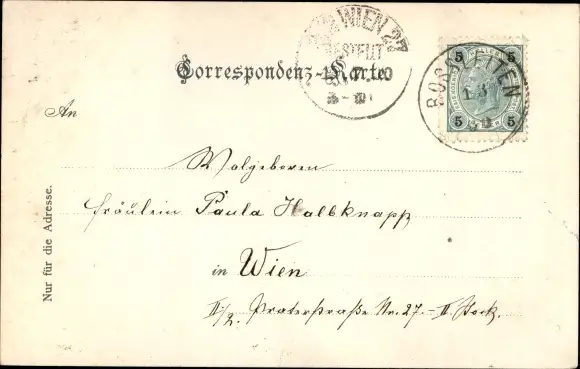 WIEN 27
BESTELLT
Correspondenz-Karte
5 5
ROSSLEITEN
5 5
An
Wolgeboren
Fräulein Paula Halbknapp
in Wien
II/2. Praterstraße Nr. 27. – II. Stock.
Nur für die Adresse.